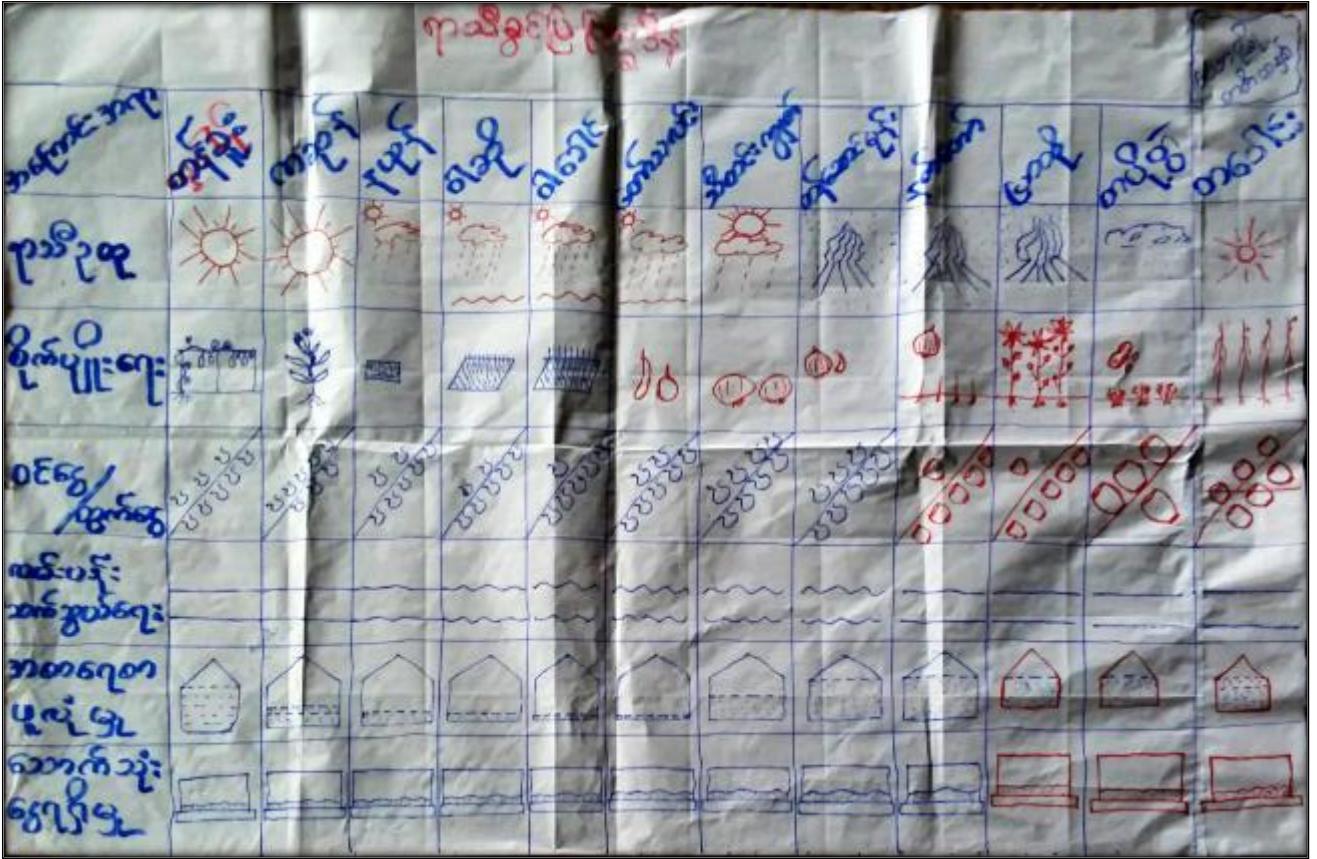 ရာသီခွင်ပြ
အကြောင်းအရာ
တန်ခူး
ကဆုန်
နယုန်
ဝါဆို
ဝါခေါင်
တော်သလင်း
သီတင်းကျွတ်
တန်ဆောင်မုန်း
နတ်တော်
ပြာသို
တပို့တွဲ
တပေါင်း
ရာသီဥတု
စိုက်ပျိုးရေး
ဝင်ငွေ/
ထွက်ငွေ
လမ်းပန်း
ဆက်သွယ်ရေး
အစားရေစာ
ဖူလုံမှု
သောက်သုံး
ရေရရှိမှု